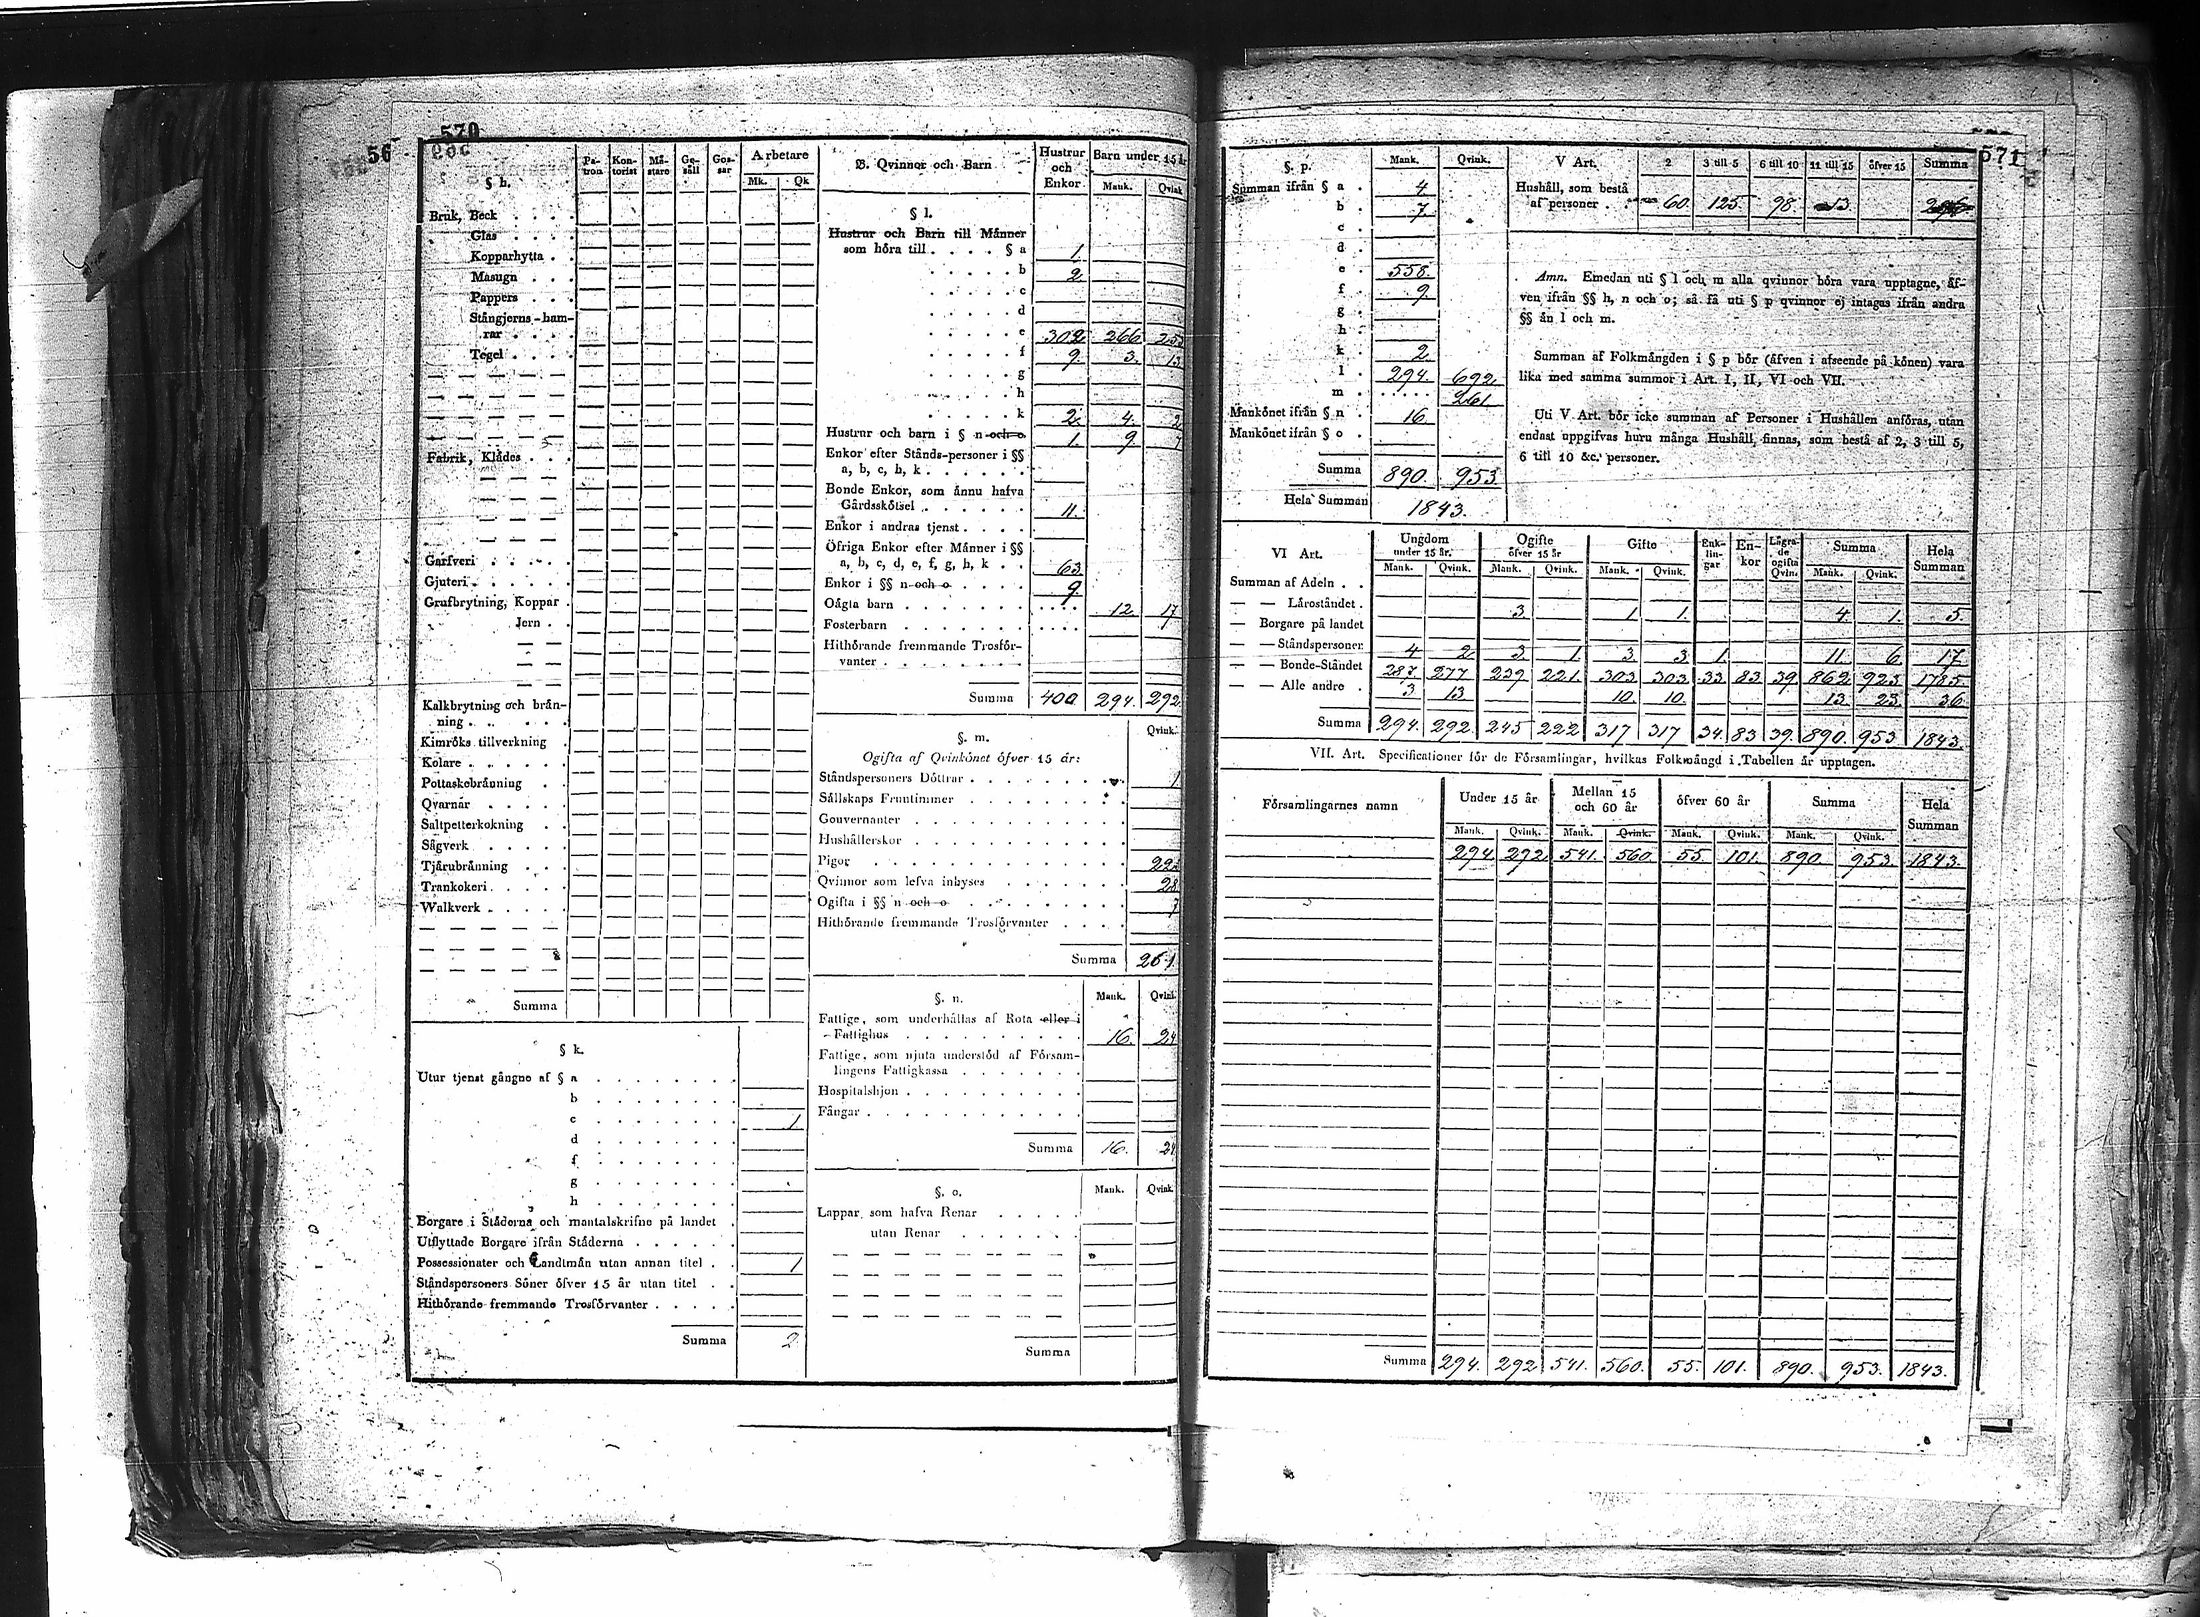 570
56
§ h.
Pa-tron Kon-torist Mä-stare Ge-säll Gos-sar Arbetare
Mk. Qk
Bruk, Beck . . . .
Glas . . . .
Kopparhytta . .
Masugn . . .
Pappers . . .
Stångjerns-ham-
rar . . . .
Tegel . . . .
Fabrik, Klädes . . .
Garfveri . . . . .
Gjuteri . . . . .
Grufbrytning, Koppar .
Jern . .
Kalkbrytning och brän-
ning . . . . .
Kimröks tillverkning .
Kolare . . . . .
Pottaskebränning . .
Qvarnar . . . .
Saltpetterkokning . .
Sågverk . . . . .
Tjärubränning . . .
Trankokeri . . . .
Walkverk . . . .
Summa
§ k.
Utur tjenst gångne af § a . . . . . . .
b . . . . . . .
c . . . . . . . 1
d . . . . . . .
f . . . . . . .
g . . . . . . .
h . . . . . . .
Borgare i Städerna och mantalskrifne på landet .
Utflyttade Borgare ifrån Städerna . . . . .
Possessionater och Landtmän utan annan titel . . 1
Ståndspersoners Söner öfver 15 år utan titel . .
Hithörande fremmande Trosförvanter . . . . .
Summa 2
B. Qvinnor och Barn
Hustrur och Enkor Barn under 15 år
Mank. Qvink
§ l.
Hustrur och Barn till Männer
som höra till . . . . § a 1.
b 2.
c
d
e 302 266
f 9. 3. 13
g
h
k 2. 4. 2
Hustrur och barn i § n och o 1. 9. 7
Enkor efter Stånds-personer i §§
a, b, c, h, k . . . . . .
Bonde Enkor, som ännu hafva
Gårdsskötsel . . . . . . 11.
Enkor i andras tjenst . . . .
Öfriga Enkor efter Männer i §§
a, b, c, d, e, f, g, h, k . . 63
Enkor i §§ n och o . . . . 9.
Oägta barn . . . . . . . . . . . 12 17
Fosterbarn . . . . . . . . . . .
Hithörande fremmande Trosför-
vanter . . . . . . . .
Summa 400. 294. 292
§. m. Qvink.
Ogifta af Qvinkönet öfver 15 år:
Ståndspersoners Döttrar . . . . . . . . 1
Sällskaps Fruntimmer . . . . . . . .
Gouvernanter . . . . . . . . . . .
Hushållerskor . . . . . . . . . . .
Pigor . . . . . . . . . . . . .
Qvinnor som lefva inhyses . . . . . . . 28
Ogifta i §§ n och o . . . . . . . . . 7
Hithörande fremmande Trosförvanter . . . .
Summa 261.
§. n. Mank. Qvink.
Fattige, som underhållas af Rota eller i
Fattighus . . . . . . . . . . 16. 24
Fattige, som njuta understöd af Försam-
lingens Fattigkassa . . . . . . .
Hospitalshjon . . . . . . . . . . .
Fångar . . . . . . . . . . . .
Summa 16. 24
§. o. Mank. Qvink.
Lappar, som hafva Renar . . . . .
utan Renar . . . . . . .
Summa
571
§. p. Mank. Qvink.
Summan ifrån § a . 4
b . 7.
c .
d .
e . 558.
f . 9.
g .
h .
k . 2.
l . 294. 692
m . . . . . . 261.
Mankönet ifrån § n . 16.
Mankönet ifrån § o .
Summa 890. 953
Hela Summan 1843.
V Art. 2 3 till 5 6 till 10 11 till 15 öfver 15 Summa
Hushåll, som bestå
af personer . . 60. 125. 98. 13.
Anm. Emedan uti § l och m alla qvinnor böra vara upptagne, äf-
ven ifrån §§ h, n och o; så få uti § p qvinnor ej intagas ifrån andra
§§ än l och m.
Summan af Folkmängden i § p bör (äfven i afseende på könen) vara
lika med samma summor i Art. I, II, VI och VII.
Uti V Art. bör icke summan af Personer i Hushållen anföras, utan
endast uppgifvas huru många Hushåll finnas, som bestå af 2, 3 till 5,
6 till 10 &c. personer.
VI Art. Ungdom under 15 år. Ogifte öfver 15 år Gifte Enk-lin-gar En-kor Lägra-de ogifta Qvin. Summa Hela Summan
Mank. Qvink. Mank. Qvink. Mank. Qvink. Mank. Qvink.
Summan af Adeln . .
— — Läroståndet . 3. 1 1. 4. 1. 5.
— Borgare på landet
— — Ståndspersoner 4 2 3. 1. 3. 3. 1. 11. 6. 17.
— — Bonde-Ståndet 287. 277 239. 221. 303. 303. 33. 83 39. 862. 923. 1785.
— — Alle andre . 3 13 10. 10. 13. 23. 36
Summa 294. 292. 245 222 317 317 34. 83 39. 890. 953 1843.
VII. Art. Specificationer för de Församlingar, hvilkas Folkmängd i Tabellen är upptagen.
Församlingarnes namn Under 15 år Mellan 15 och 60 år öfver 60 år Summa Hela Summan
Mank. Qvink. Mank. Qvink. Mank. Qvink. Mank. Qvink.
294. 292 541. 560. 55. 101. 890. 953. 1843.
Summa 294. 292 541. 560. 55. 101. 890. 953. 1843.